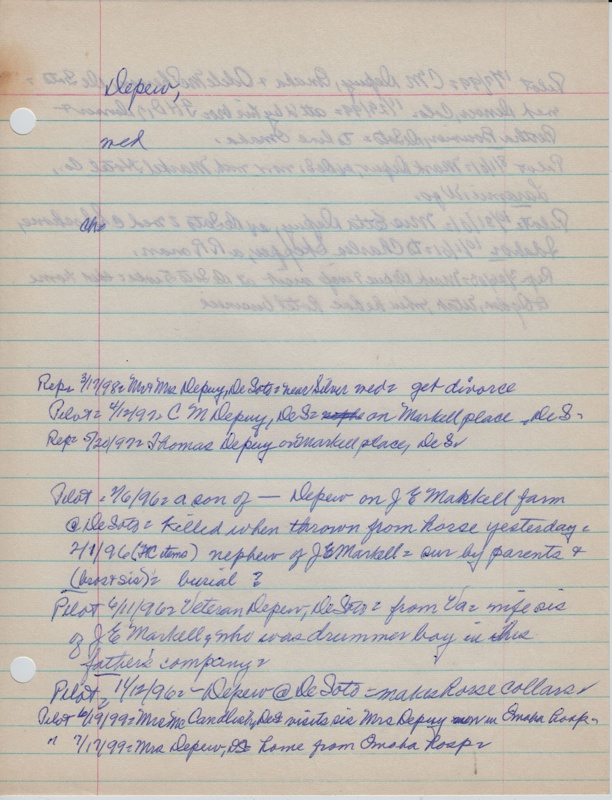 Depew,
med
chr
Rep= 3/17/98= Mr & Mrs Depuy, De Soto= near Silver wed= get divorce
Pilot= 4/12/97= C M Depuy, DeS= on Markell place, DeS=
Rep= 5/20/97= Thomas Depuy on Markell place, DeS=
Pilot= 7/6/96= a son of — Depew on J E Markell farm
@ DeSoto= killed when thrown from horse yesterday=
(FC items) nephew of J E Markell= sur by parents &
(bros & sis)= burial ?
Pilot 6/11/96= Veteran Depew, DeSoto= from Va= wife sis
of J E Markell, who was drummer boy in this
father's company=
Pilot= 11/12/96= — Depew @ De Soto= makes horse collars=
Pilot 6/19/99= Mrs Mc Candlish, DeS visits sis Mrs Depuy in Omaha hosp=
" 7/17/99= Mrs Depew, DS home from Omaha hosp=